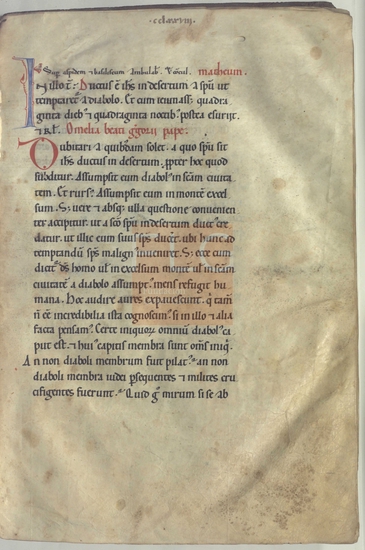 ·cclxxviii·
Sup aspidem ⁊ basiliscum Ambulab. V. matheum.
IN illo t̄: Ductus ē ih̄s in desertum a sp̄u ut
temptaret᷑ a diabolo. Et cum ieiunass& quadra
ginta dieb; ⁊ quadraginta noctib; postea esuriit.
⁊ rl̄. Omelia beati gḡorii pape:
Dubitari a quibusdam solet. a quo sp̄u sit
ih̄s ductus in desertum. ꝓpter hoc quod
subditur. Assumpsit eum diabol᷒ in sc̄am ciuita
tem. Et rurs᷒. Assumpsit eum in montē excel
sum. S; uere ⁊ absq; ulla questione conuenien
ter accipitur. ut a sc̄o sp̄u in desertum duct᷒ cre
datur. ut illic eum suus sp̄s ducer&. ubi hunc ad
temptandū sp̄s malign᷒ inuenir&. S; ecce cum
dicit᷑ ds̄ homo ul̄ in excelsum montē ul̄ in sc̄am
ciuitatē a diabolo assumpt᷒. mens refugit hu
mana. Hoc audire aures expauescunt. q̇ tam̄
n̄ eē incredibilia ista cognoscim᷒. si in illo ⁊ alia
facta pensam᷒. Certe iniquoꝝ omniū diabol᷒ ca
put est. ⁊ hui᷒ capitis membra sunt om̄s iniq̇.
An non diaboli membrum fuit pilat᷒? an non
diaboli membra iudei ꝑsequentes ⁊ milites cru
cifigentes fuerunt? Quid g̊ mirum si se ab